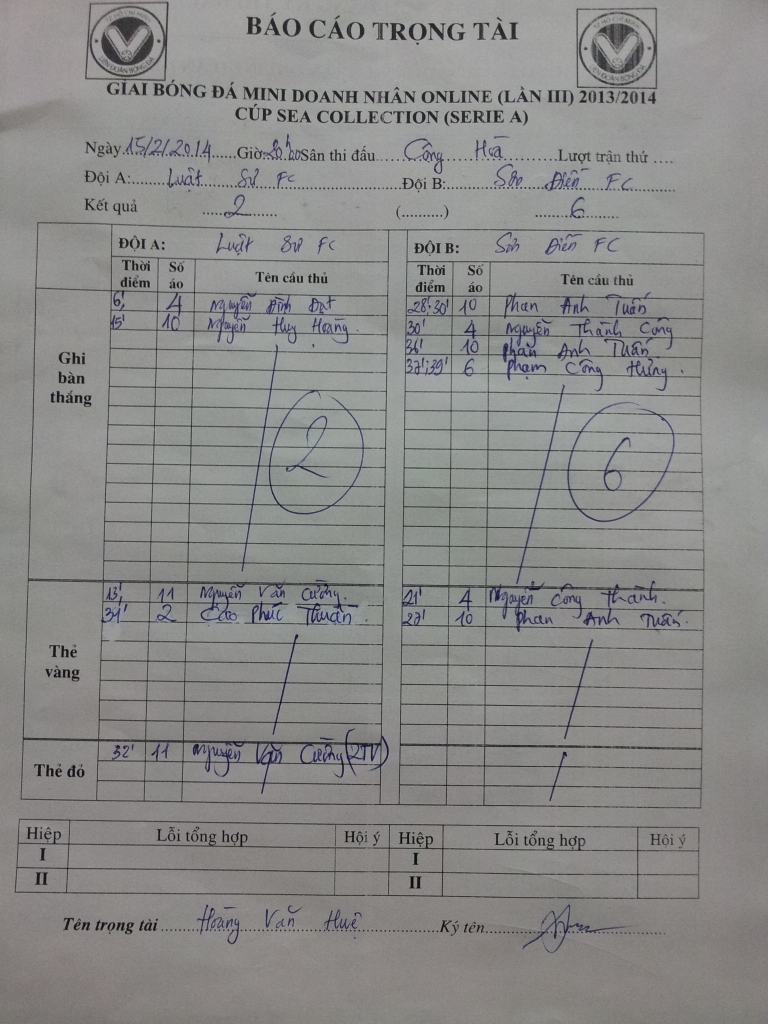 BÁO CÁO TRỌNG TÀI
GIẢI BÓNG ĐÁ MINI DOANH NHÂN ONLINE (LẦN III) 2013/2014
CÚP SEA COLLECTION (SERIE A)
Ngày 15/2/2014 Giờ: 20h20 Sân thi đấu Cộng Hoà Lượt trận thứ ....
Đội A: Luật Sư FC Đội B: Sơn Điền FC
Kết quả 2 (..........) 6
ĐỘI A: Luật Sư FC ĐỘI B: Sơn Điền FC
Thời điểm Số áo Tên cầu thủ Thời điểm Số áo Tên cầu thủ
Ghi bàn thắng
6' 4 Nguyễn Đình Đạt 28';30' 10 Phan Anh Tuấn
15' 10 Nguyễn Huy Hoàng 30' 4 Nguyễn Thành Công
36' 10 Phan Anh Tuấn
37';39' 6 Phạm Công Hưng
2 6
Thẻ vàng
13' 11 Nguyễn Văn Cường 21' 4 Nguyễn Công Thành
34' 2 Cao Phúc Thuần 27' 10 Phan Anh Tuấn
Thẻ đỏ
32' 11 Nguyễn Văn Cường (2TV)
Hiệp Lỗi tổng hợp Hội ý Hiệp Lỗi tổng hợp Hội ý
I I
II II
Tên trọng tài Hoàng Văn Huệ Ký tên